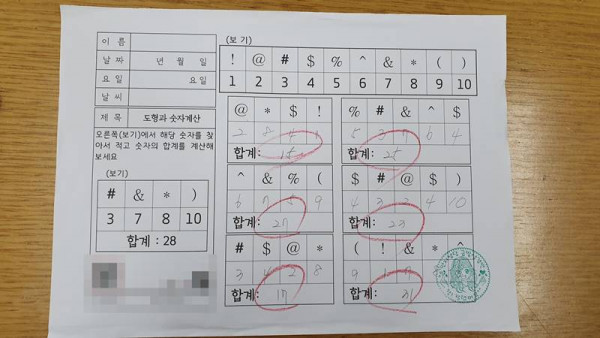 이 름
날 짜 년 월 일
요 일 요일
날 씨
제 목 도형과 숫자계산
오른쪽(보기)에서 해당 숫자를 찾
아서 적고 숫자의 합계를 계산해
보세요
(보기)
# & * )
3 7 8 10
합계 : 28
(보 기)
! @ # $ % ^ & * ( )
1 2 3 4 5 6 7 8 9 10
@ * $ !
2 8 4 1
합계: 15
% # & ^ $
5 3 7 6 4
합계: 25
^ & % (
6 7 5 9
합계: 27
$ # @ $ )
4 3 2 4 10
합계: 23
# $ @ *
3 4 2 8
합계: 17
( ! & * ^
9 1
합계: 31